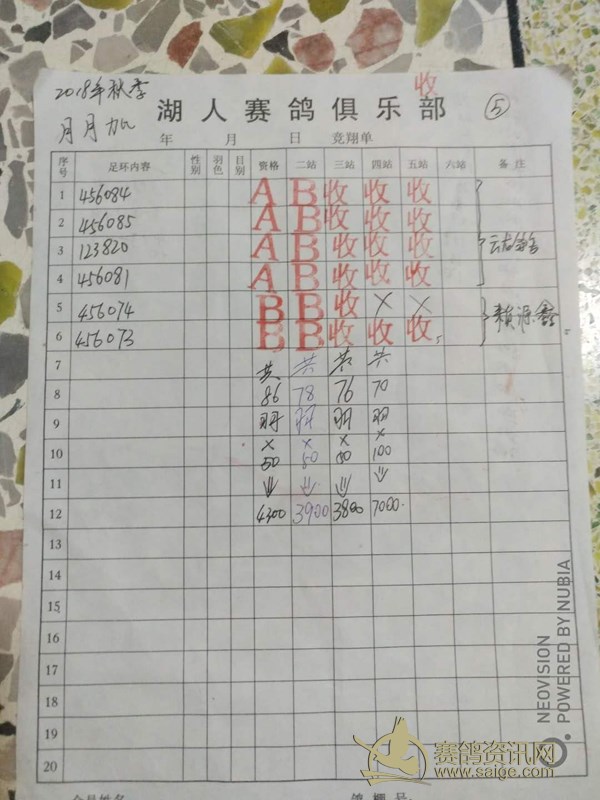 2018年秋季
收
湖人赛鸽俱乐部
⑤
月月加
年 月 日 竞翔单
序号 足环内容 性别 羽色 日别 资格 二站 三站 四站 五站 六站 备注
1 456084 A B 收 收 收
2 456085 A B 收 收 收
3 123820 A B 收 收 收
4 456081 A B 收 收 收
5 456074 B B 收 × × 赖源鑫
6 456073 B B 收 收 收
7 共 共 共 共
8 86 78 76 70
9 羽 羽 羽 羽
10 × × × ×
50 50 50 100
11 ⇓ ⇓ ⇓ ⇓
12 4300 3900 3800 7000
13
14
15
16
17
18
19
20
会员姓名 鸽棚号
NEOVISION
POWERED BY NUBIA
赛鸽资讯网
www.saige.com